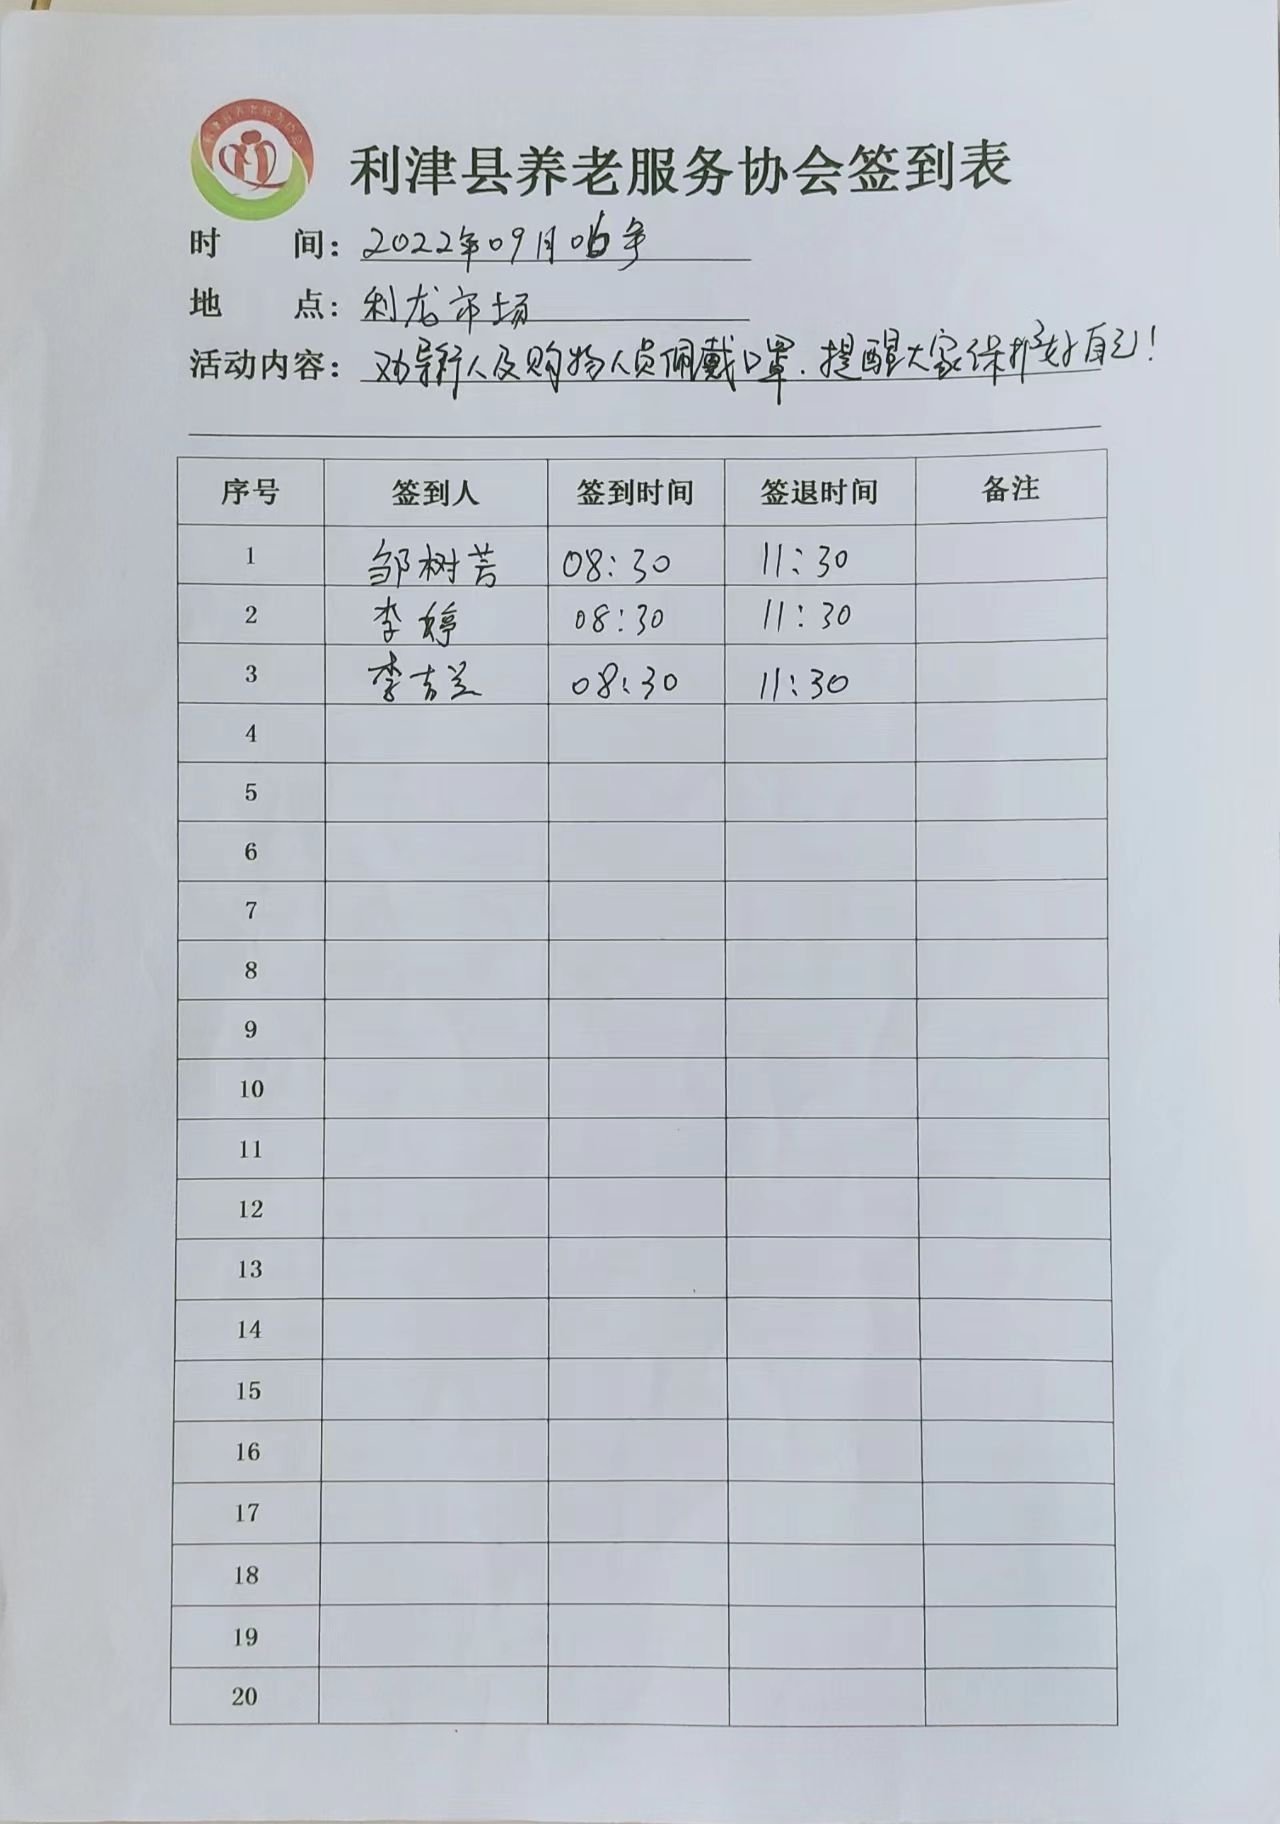 利津县养老服务协会
利津县养老服务协会签到表
时 间：2022年09月06号
地 点：利龙市场
活动内容：劝导行人及购物人员佩戴口罩.提醒大家保护好自己！
序号 签到人 签到时间 签退时间 备注
1 邹树芳 08:30 11:30
2 李婷 08:30 11:30
3 李吉兰 08:30 11:30
4
5
6
7
8
9
10
11
12
13
14
15
16
17
18
19
20